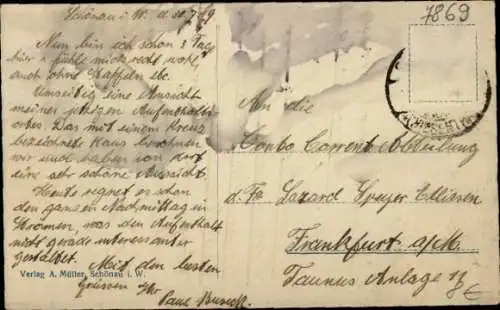 Schönau i. W. d. 10.7.29
7869
Nun bin ich schon 3 Tag
hier u fühle mich recht wohl
auch ohne
Umseitig eine Ansicht
meines jetzigen Aufenthalts
ortes. Das mit einem Kreuz
bezeichnete Haus bewohnen
wir und haben von dort
eine sehr schöne Aussicht.
Heute regnet es schon
den ganzen Nachmittag in
Strömen, was den Aufenthalt
nicht gerade interessanter
gestaltet. Mit den besten
Grüssen Ihr
Paul
Verlag A. Müller, Schönau i. W.
An die
Conto Corrent Abteilung
d. Fa Lazard Speyer Ellissen
Frankfurt a/M.
Taunus Anlage
8€